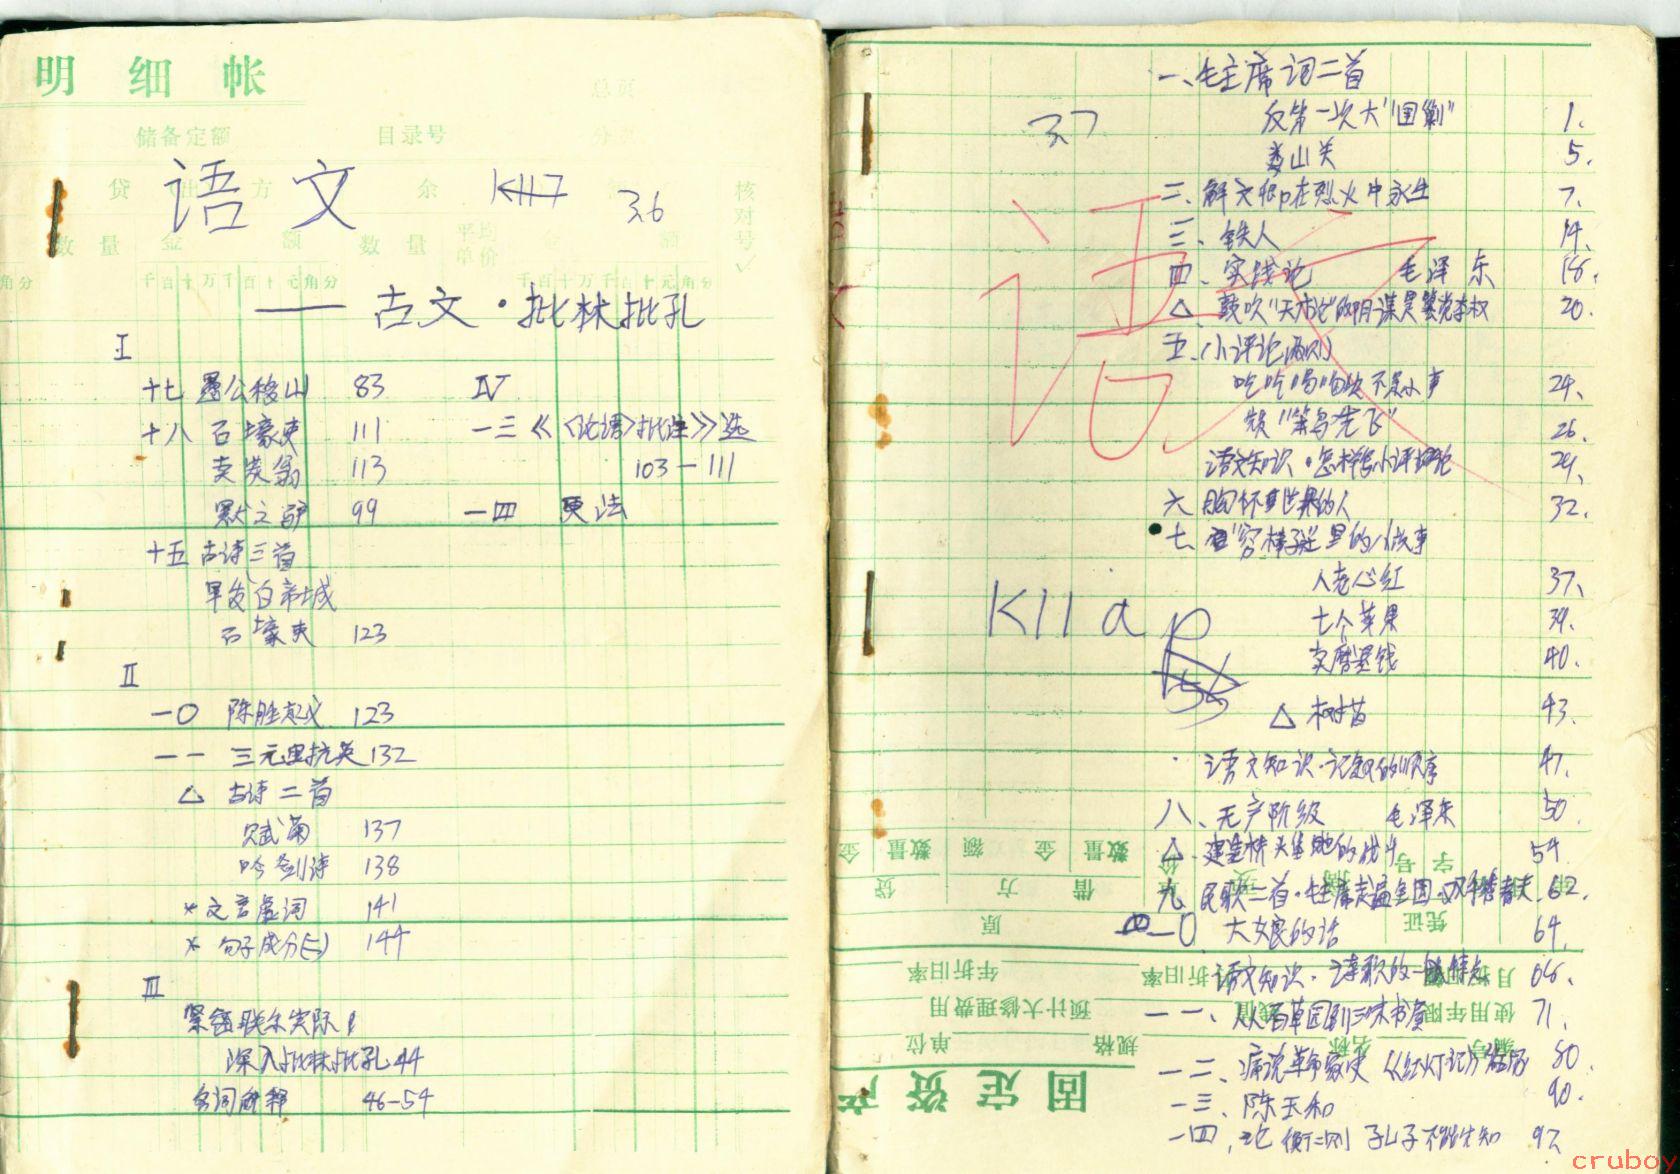 明细帐
总页
储备定额 目录号 分页
贷（出）方 余 核对号
语文 K117 36
数量 金额 数量 平均单价 金额
千百十万千百十元角分 千百十万千百十元角分
——古文·批林批孔
I
十七 愚公移山 83
十八 石壕吏 111
卖炭翁 113
黔之驴 99
十五 古诗三首
早发白帝城
石壕吏 123
II
一〇 陈胜起义 123
一一 三元里抗英 132
△ 古诗二首
赋菊 137
咏剑诗 138
* 文言虚词 141
* 句子成分(三) 144
III
紧密联系实际
深入批林批孔 44
名词解释 46-54
IV
一三《〈论语〉批注》选
103-111
一四 更法
一、毛主席词二首
37
反第一次大“围剿” 1、
娄山关 5、
二、解文卿在烈火中永生 7、
三、铁人 14、
四、实践论 毛泽东 18、
△、鼓吹“天才论”的阴谋是篡党夺权 20、
五、小评论两则
吃吃喝喝不是小事 24、
颂“笨鸟先飞” 26、
语文知识·怎样写小评论 29、
六 胸怀世界的人 32、
七、“穷棒子”社里的小故事
人老心红 37、
七个苹果 39、
K11a
40、
△ 树苗 43、
语文知识·记叙的顺序 47、
八、无产阶级 毛泽东 50、
△、的战斗 54
九 民歌二首·毛主席走遍全国· 62、
一〇 大女嫂的话 64、
语文知识·诗歌的一般特点 68、
一一、从百草园到三味书屋 71、
一二、痛说革命家史《红灯记》 80、
一三、陈玉和 90、
一四、论衡二则 孔子不能先知 97、
数量 金额 数量 金
借方 贷
原 凭证 字号
年折旧率 月折旧率
预计大修理费用 使用年限
单位 规格 名称 编号
固定资产
语文
cruboy